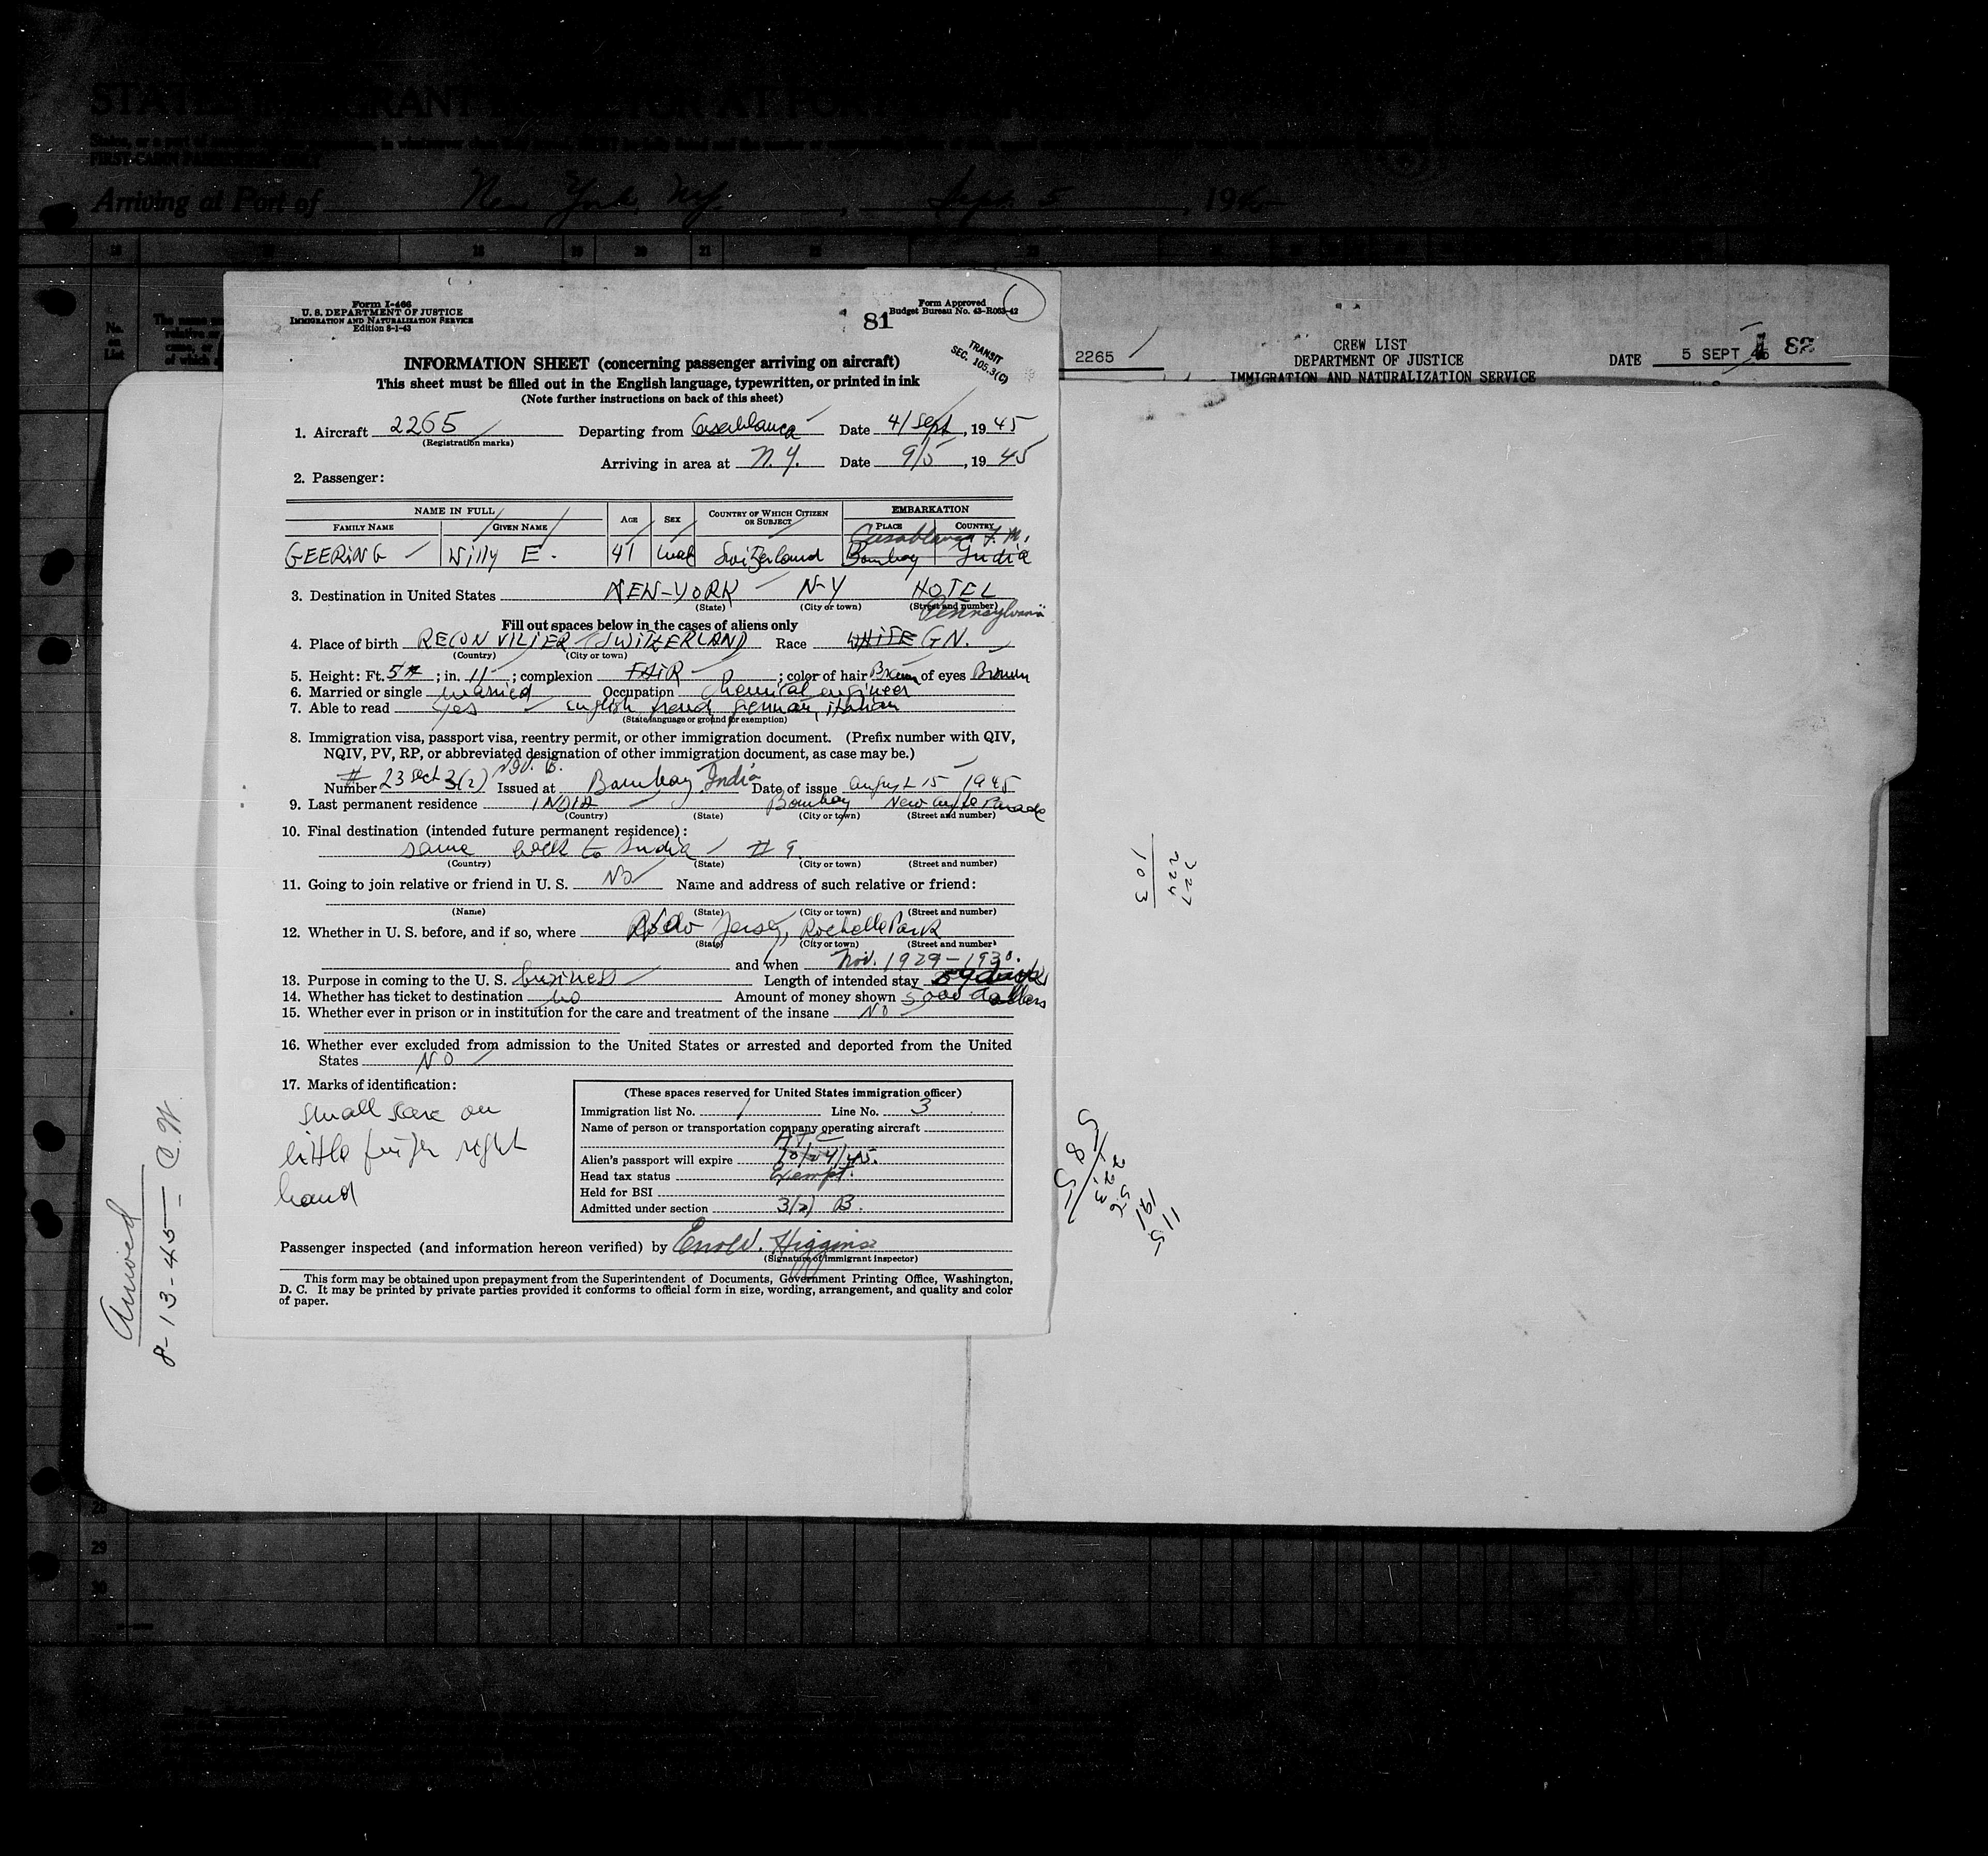 Arriving at Port of New York, N.Y. Sept 5, 19
Form I-466
U. S. DEPARTMENT OF JUSTICE
IMMIGRATION AND NATURALIZATION SERVICE
Edition 8-1-43
Form Approved
Budget Bureau No. 43-R063-42
81
TRANSIT
SEC. 105.3(C)
INFORMATION SHEET (concerning passenger arriving on aircraft)
This sheet must be filled out in the English language, typewritten, or printed in ink
(Note further instructions on back of this sheet)
1. Aircraft 2265 Departing from Casablanca Date 4/Sept, 1945
(Registration marks)
Arriving in area at N.Y. Date 9/5, 1945
2. Passenger:
NAME IN FULL AGE SEX COUNTRY OF WHICH CITIZEN OR SUBJECT EMBARKATION
FAMILY NAME GIVEN NAME PLACE COUNTRY
Casablanca F.M.
GEERING Willy E. 41 male Switzerland Bombay India
3. Destination in United States NEW-YORK N-Y HOTEL
(State) (City or town) (Street and number)
Pennsylvania
Fill out spaces below in the cases of aliens only
4. Place of birth RECONVILIER (SWITZERLAND) Race WHITE GN.
(Country) (City or town)
5. Height: Ft. 5 ; in. 11 ; complexion FAIR ; color of hair Brown of eyes Brown
6. Married or single married Occupation Chemical engineer
7. Able to read yes English french German, italian
(State language or ground for exemption)
8. Immigration visa, passport visa, reentry permit, or other immigration document. (Prefix number with QIV,
NQIV, PV, RP, or abbreviated designation of other immigration document, as case may be.)
Number # 23 sect 3(2) Issued at Bombay India Date of issue August 15 1945
9. Last permanent residence INDIA Bombay
(Country) (State) (City or town) (Street and number)
10. Final destination (intended future permanent residence):
same back to India # 9
(Country) (State) (City or town) (Street and number)
11. Going to join relative or friend in U. S. NO Name and address of such relative or friend:
(Name) (State) (City or town) (Street and number)
12. Whether in U. S. before, and if so, where New Jersey, Rochelle Park
(State) (City or town) (Street and number)
and when Nov. 1929-1930.
13. Purpose in coming to the U. S. business Length of intended stay 59 days
14. Whether has ticket to destination no Amount of money shown 5000 dollars
15. Whether ever in prison or in institution for the care and treatment of the insane NO
16. Whether ever excluded from admission to the United States or arrested and deported from the United
States NO
17. Marks of identification:
small scar on
little finger right
hand
(These spaces reserved for United States immigration officer)
Immigration list No. 1 Line No. 3
Name of person or transportation company operating aircraft
ATC
Alien's passport will expire 10/24/45.
Head tax status Exempt.
Held for BSI
Admitted under section 3(2) B.
Passenger inspected (and information hereon verified) by Errol W. Higgins
(Signature of immigrant inspector)
This form may be obtained upon prepayment from the Superintendent of Documents, Government Printing Office, Washington,
D. C. It may be printed by private parties provided it conforms to official form in size, wording, arrangement, and quality and color
of paper.
2265
CREW LIST
DEPARTMENT OF JUSTICE
IMMIGRATION AND NATURALIZATION SERVICE
DATE 5 SEPT 45
82
8-13-45 - C.W.
327
224
103
29
30